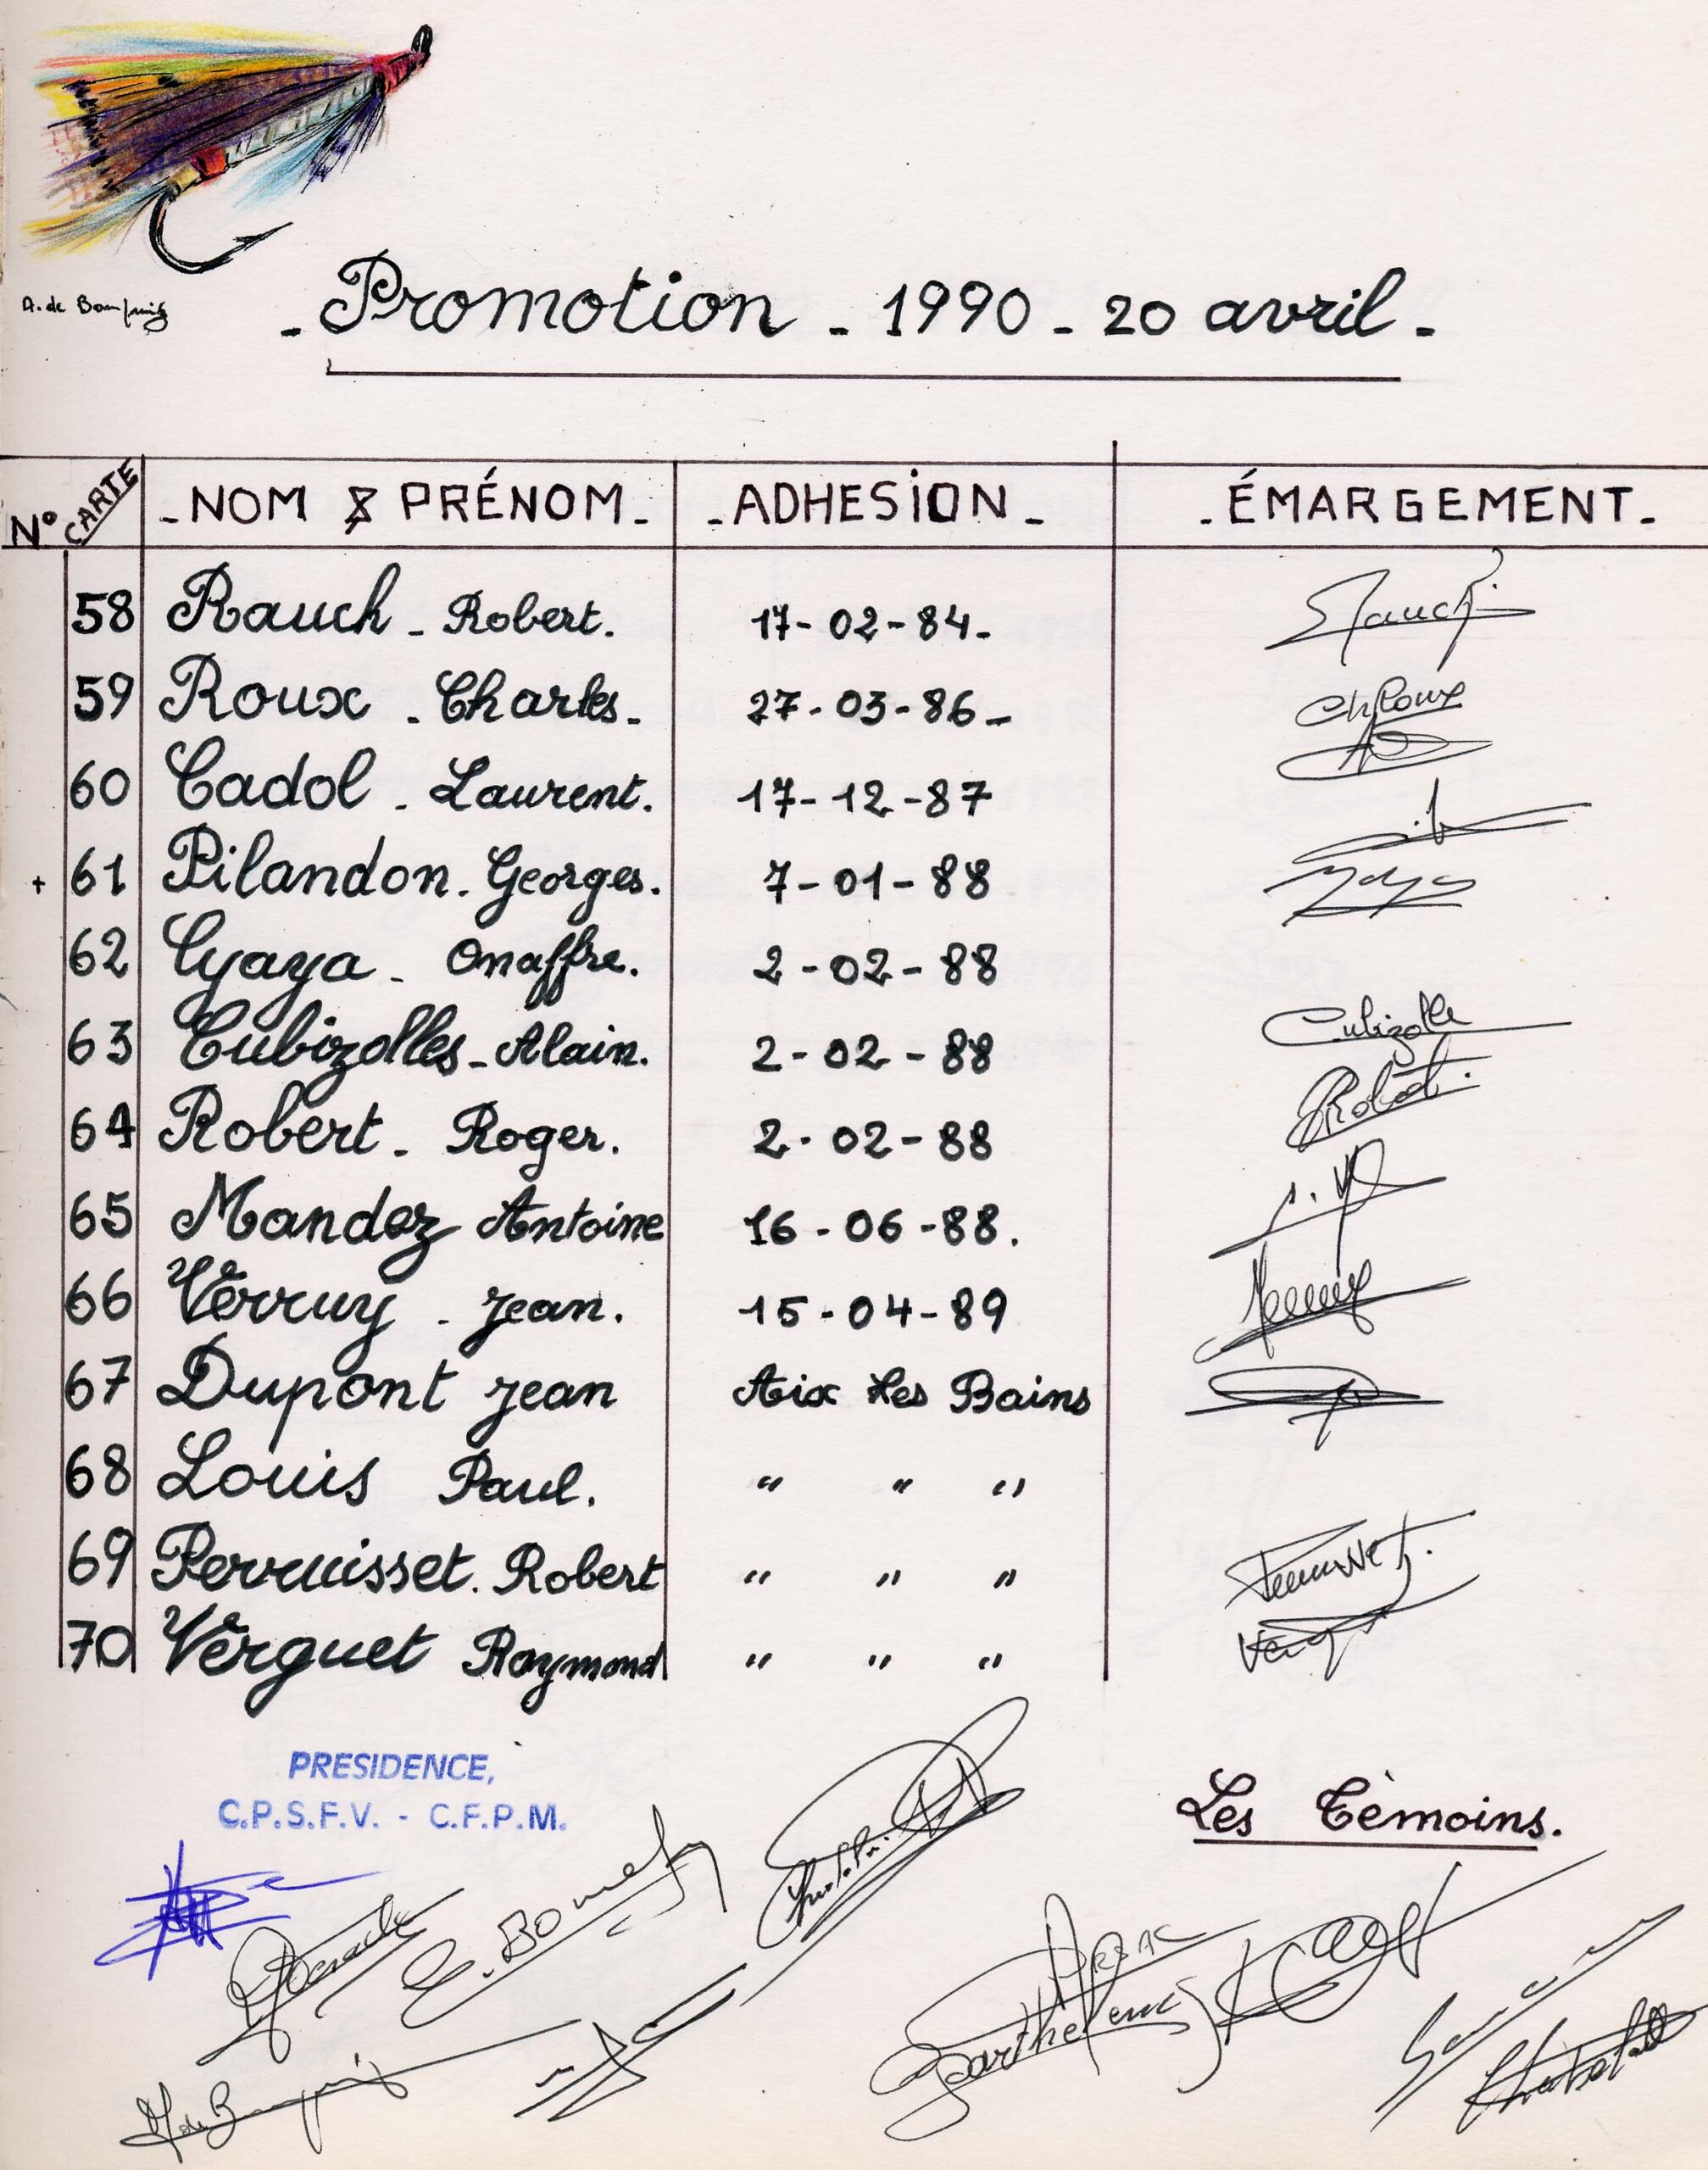 - Promotion - 1990 - 20 avril -
N° CARTE - NOM & PRÉNOM - - ADHESiON - - ÉMARGEMENT -
58 Rauch - Robert. 17-02-84- Rauch
59 Roux - Charles - 27-03-86- Ch Roux
60 Cadol - Laurent. 17-12-87
+ 61 Pilandon. Georges. 7-01-88
62 Gyaya - Onaffre. 2-02-88
63 Cubizolles - Alain. 2-02-88 Cubizolle
64 Robert - Roger. 2-02-88 Robert
65 Mandez Antoine 16-06-88.
66 Verruy - Jean. 15-04-89
67 Dupont Jean Aix Les Bains
68 Louis Paul. " " "
69 Perruisset. Robert " " "
70 Verguet Raymond " " "
PRESIDENCE,
C.P.S.F.V. - C.F.P.M.
Les Tèmoins.